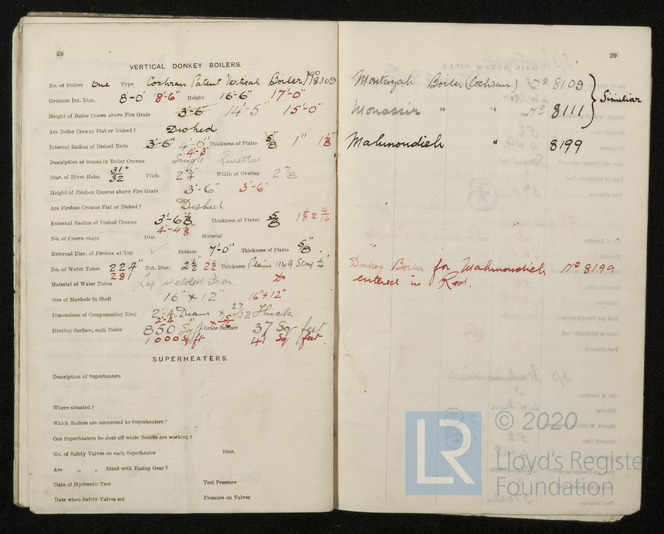 28
VERTICAL DONKEY BOILERS.
No. of Boilers one Type Cochran Patent Vertical Boiler No 8109
Greatest Int. Diar. 8-0" 8'-6" Height 16'-6" 17'-0"
Height of Boiler Crown above Fire Grate 3'-6" 14'-5" 15'-0"
Are Boiler Crowns Flat or Dished? Dished
Internal Radius of Dished Ends 3'-6" 4'-0" 4'-3" Thickness of Plates 5/8" 1" 1 1/8"
Description of Seams in Boiler Crowns Single Riveted
Diar. of Rivet Holes 31/32" Pitch Width of Overlap 2 7/8
Height of Firebox Crowns above Fire Grate 3'-6" 3'-6"
Are Firebox Crowns Flat or Dished? Dished
External Radius of Dished Crowns Thickness of Plates 5/8"
No. of Crown Stays Diar. Material
External Diar. of Firebox at Top Bottom 7'-0" Thickness of Plates 5/8"
No. of Water Tubes 224 Ext. Diar. 2 1/2 2 1/2 Thickness Plain Stay 1/4"
281
Material of Water Tubes Lap welded Iron Do
Size of Manhole in Shell 16" × 12" 16" × 12"
Dimensions of Compensating Ring 2'-4 Diam × 27/32 Thick
Heating Surface, each Boiler 850 Sq ft Grate Surface 37 Sq feet
1000 Sq ft 41 Sq feet.
SUPERHEATERS.
Description of Superheaters
Where situated?
Which Boilers are connected to Superheaters?
Can Superheaters be shut off while Boilers are working?
No. of Safety Valves on each Superheater Diar.
Are " " fitted with Easing Gear?
Date of Hydraulic Test Test Pressure
Date when Safety Valves set Pressure on Valves
29
Montazah Boiler (Cochran) No 8109
Monassir " " No 8111
Similiar
Mahmoudieh " 8199
Donkey Boiler for Mahmoudieh No 8199
entered in Red.
© 2020
LR
Lloyd's Register
Foundation